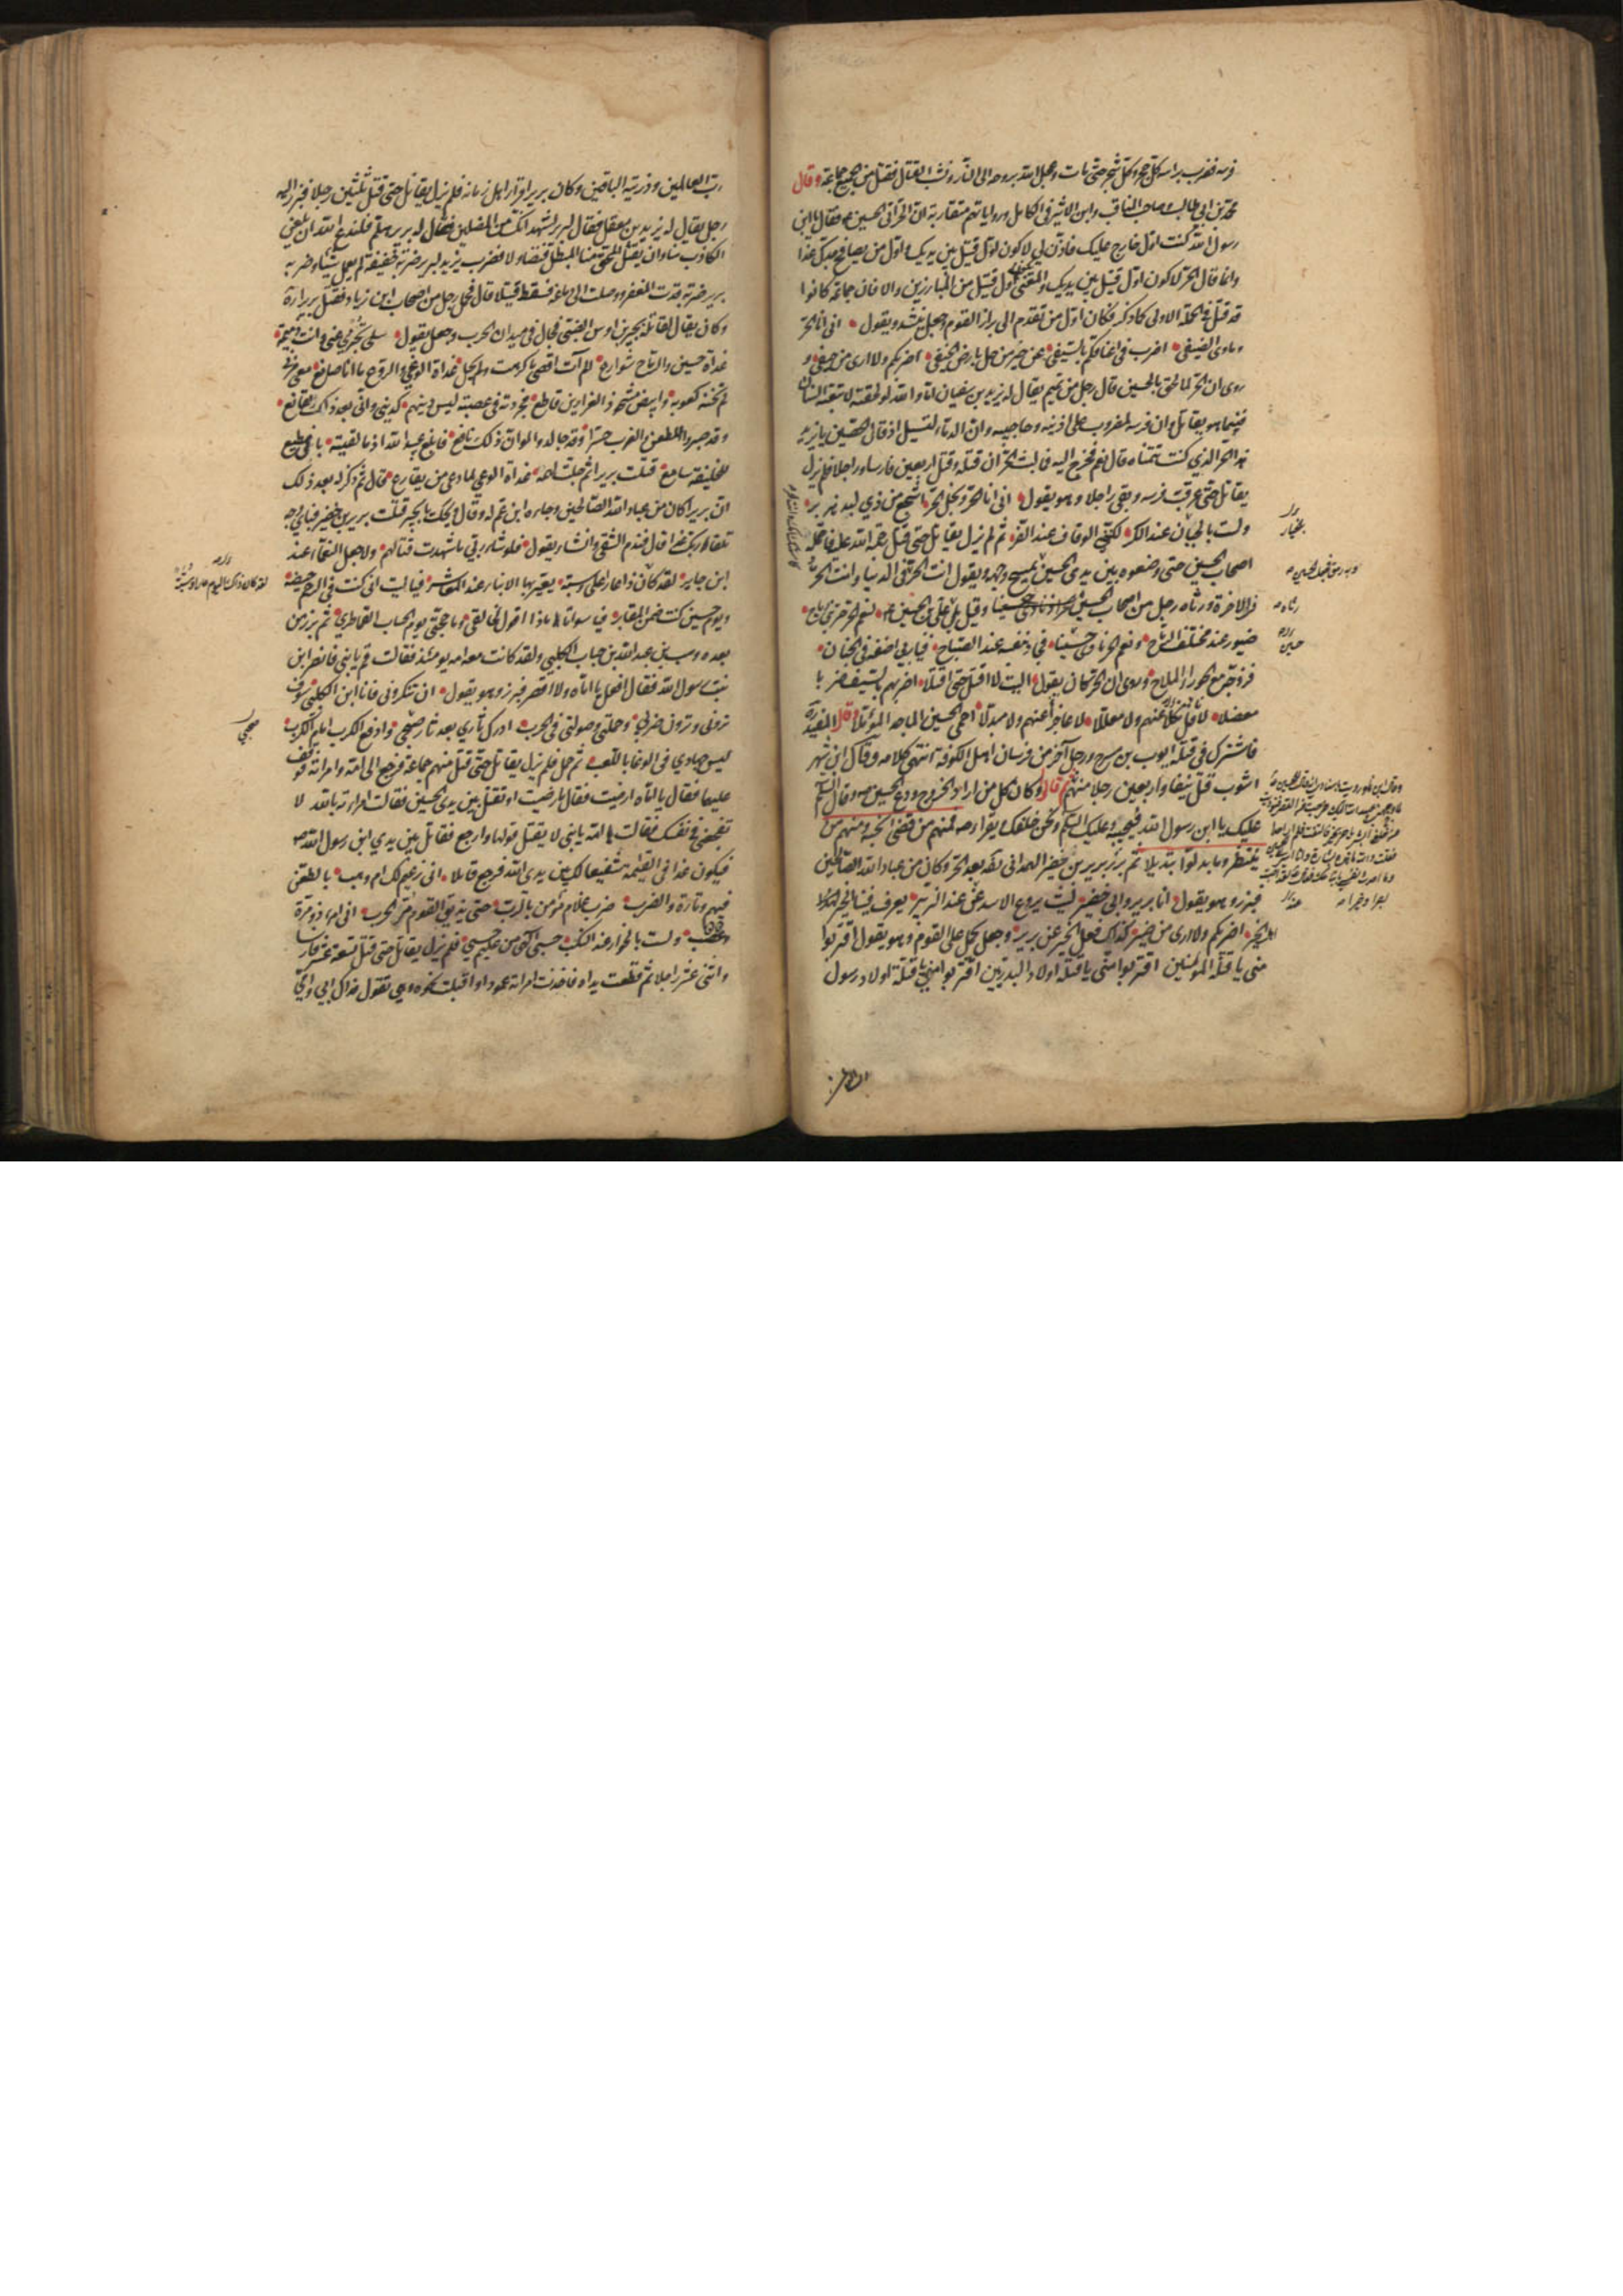 فرسه فضرب براسه كل حجر وكل شجر حتى مات وعجل الله بروحه الى النار ونشب القتال فقتل من الجميع جماعة وقال
محمد بن ابي طالب وصاحب المناقب وابن الاثير في الكامل ورواياتهم متقاربة ان الحر اتى الحسين ع فقال يا ابن
رسول الله كنت اول خارج عليك فاذن لي لاكون اول قتيل بين يديك واول من يصافح جدك غدا
وانما قال الحر لاكون اول قتيل بين يديك والمعنى اول قتيل من المبارزين والا فان جماعة كانوا
قد قتلوا في الحملة الاولى كما ذكر فكان اول من تقدم الى براز القوم وجعل ينشد ويقول اني انا الحر
وماوى الضيف اضرب في اعناقكم بالسيف عن خير من حل بارض الخيف اضربكم ولا ارى من حيف و
روى ان الحر لما لحق بالحسين قال رجل من تميم يقال له يزيد بن سفيان اما والله لو لحقته لاتبعته السنان
فبينما هو يقاتل وان فرسه لمضروب على اذنيه وحاجبيه وان الدماء لتسيل اذ قال الحصين يا يزيد
هذا الحر الذي كنت تتمناه قال نعم فخرج اليه فما لبث الحر ان قتله وقتل اربعين فارسا وراجلا فلم يزل
يقاتل حتى عرقب فرسه وبقي راجلا وهو يقول اني انا الحر ونجل الحر اشجع من ذي لبد هزبر
ولست بالجبان عند الكر لكنني الوقاف عند الفر ثم لم يزل يقاتل حتى قتل رحمه الله عليه فاحتمله
اصحاب الحسين حتى وضعوه بين يدي الحسين يمسح وجهه ويقول انت الحر في الدنيا وانت الحر
في الاخرة ورثاه رجل من اصحاب الحسين وقيل بل علي بن الحسين ع لنعم الحر حر بني رياح
صبور عند مختلف الرماح ونعم الحر نادى حسينا فجاد بنفسه عند الصباح فيا ربي اضفه في الجنان
وزوجه مع الحور الملاح وروى ان الحر كان يقول اليت لا اقتل حتى اقتلا اضربهم بالسيف ضربا
معضلا لا ناكلا عنهم ولا معللا لا عاجزا عنهم ولا مبدلا احمي الحسين الماجد المؤملا قال المفيد ره
فاشترك في قتله ايوب بن مسرح ورجل آخر من فرسان اهل الكوفة انتهى كلامه وقال ابن شهر
اشوب قتل نيفا واربعين رجلا منهم قال وكان كل من اراد الخروج ودع الحسين ص وقال السلم
عليك يا ابن رسول الله فيجيبه وعليك السلم ونحن خلفك ويقرا ص فمنهم من قضى نحبه ومنهم من
ينتظر وما بدلوا تبديلا ثم برز برير بن خضير الهمداني بعد الحر وكان من عباد الله الصالحين
فبرز وهو يقول انا برير وابي خضير ليث يروع الاسد عند الزئير يعرف فينا الخير
اهل الخير اضربكم ولا ارى من ضير كذاك فعل الخير عن برير وجعل يحمل على القوم وهو يقول اقتربوا
مني يا قتلة المؤمنين اقتربوا مني يا قتلة اولاد البدريين اقتربوا مني يا قتلة اولاد رسول
رب العالمين وذريته الباقين وكان برير اقرا اهل زمانه فلم يزل يقاتل حتى قتل ثلثين رجلا فبرز اليه
رجل يقال له يزيد بن معقل فقال لبرير اشهد انك من المضلين فقال له برير هلم فلندع الله ان يلعن
الكاذب منا وان يقتل المحق منا المبطل فتصاولا فضرب يزيد لبرير ضربة خفيفة لم يعمل شيئا وضربه
برير ضربة قدت المغفر ووصلت الى دماغه فسقط قتيلا قال فحمل رجل من اصحاب ابن زياد فقتل بريرا ره
وكان يقال لقاتله بحير بن اوس الضبي فجال في ميدان الحرب وجعل يقول سلي تخبري عني وانت ذميمة
غداة حسين والرماح شوارع الم آت اقصى ما كرهت ولم يحل غداة الوغى والروع ما انا صانع معي مزني
لم تخنه كعوبه وابيض مشحوذ الغرارين قاطع فجردته في عصبة ليس دينهم كديني واني بعد ذاك لقانع
وقد صبروا للطعن والضرب حسرا وقد جالدوا لو ان ذلك نافع فابلغ عبيد الله اذ ما لقيته باني مطيع
للخليفة سامع قتلت بريرا ثم جلت لهمة غداة الوغى لما دعى من يقارع قال ثم ذكر له بعد ذلك
ان بريرا كان من عباد الله الصالحين وجاءه ابن عم له وقال ويحك يا بحير قتلت برير بن خضير فباي وجه
تلقى ربك غدا قال فندم الشقي وانشا يقول فلو شاء ربي ما شهدت قتالهم ولا جعل النعماء عند
ابن جابر لقد كان ذا عارا علي وسبة يعير بها الابناء عند المعاشر فيا ليت اني كنت في الرحم حيضة
ويوم حسين كنت ضمن المقابر فيا سوأتا ماذا اقول لخالقي وما حجتي يوم الحساب القماطر ثم برز من
بعده وهب بن عبد الله بن حباب الكلبي ولقد كانت معه امه يومئذ فقالت قم يا بني فانصر ابن
بنت رسول الله فقال افعل يا اماه ولا اقصر فبرز وهو يقول ان تنكروني فانا ابن الكلبي سوف
تروني وترون ضربي وحملتي وصولتي في الحرب ادرك ثاري بعد ثار صحبي وادفع الكرب امام الكرب
ليس جهادي في الوغا باللعب ثم حمل فلم يزل يقاتل حتى قتل منهم جماعة فرجع الى امه وامراته فوقف
عليهما فقال يا اماه ارضيت فقال ما رضيت او تقتل بين يدي الحسين فقالت امراته بالله لا
تفجعني في نفسك فقالت امه يا بني لا تقبل قولها وارجع فقاتل بين يدي ابن رسول الله ص
فيكون غدا في القيمة شفيعا لك بين يدي الله فرجع قائلا اني زعيم لك ام وهب بالطعن
فيهم وتارة والضرب ضرب غلام مؤمن بالرب حتى يذيق القوم مر الحرب اني امرء ذو مرة
وعصب ولست بالخوار عند النكب حسبي الهي من عليم حسبي فلم يزل يقاتل حتى قتل تسعة عشر فارسا
واثنى عشر راجلا ثم قطعت يداه فاخذت امراته عمودا واقبلت نحوه وهي تقول فداك ابي وامي